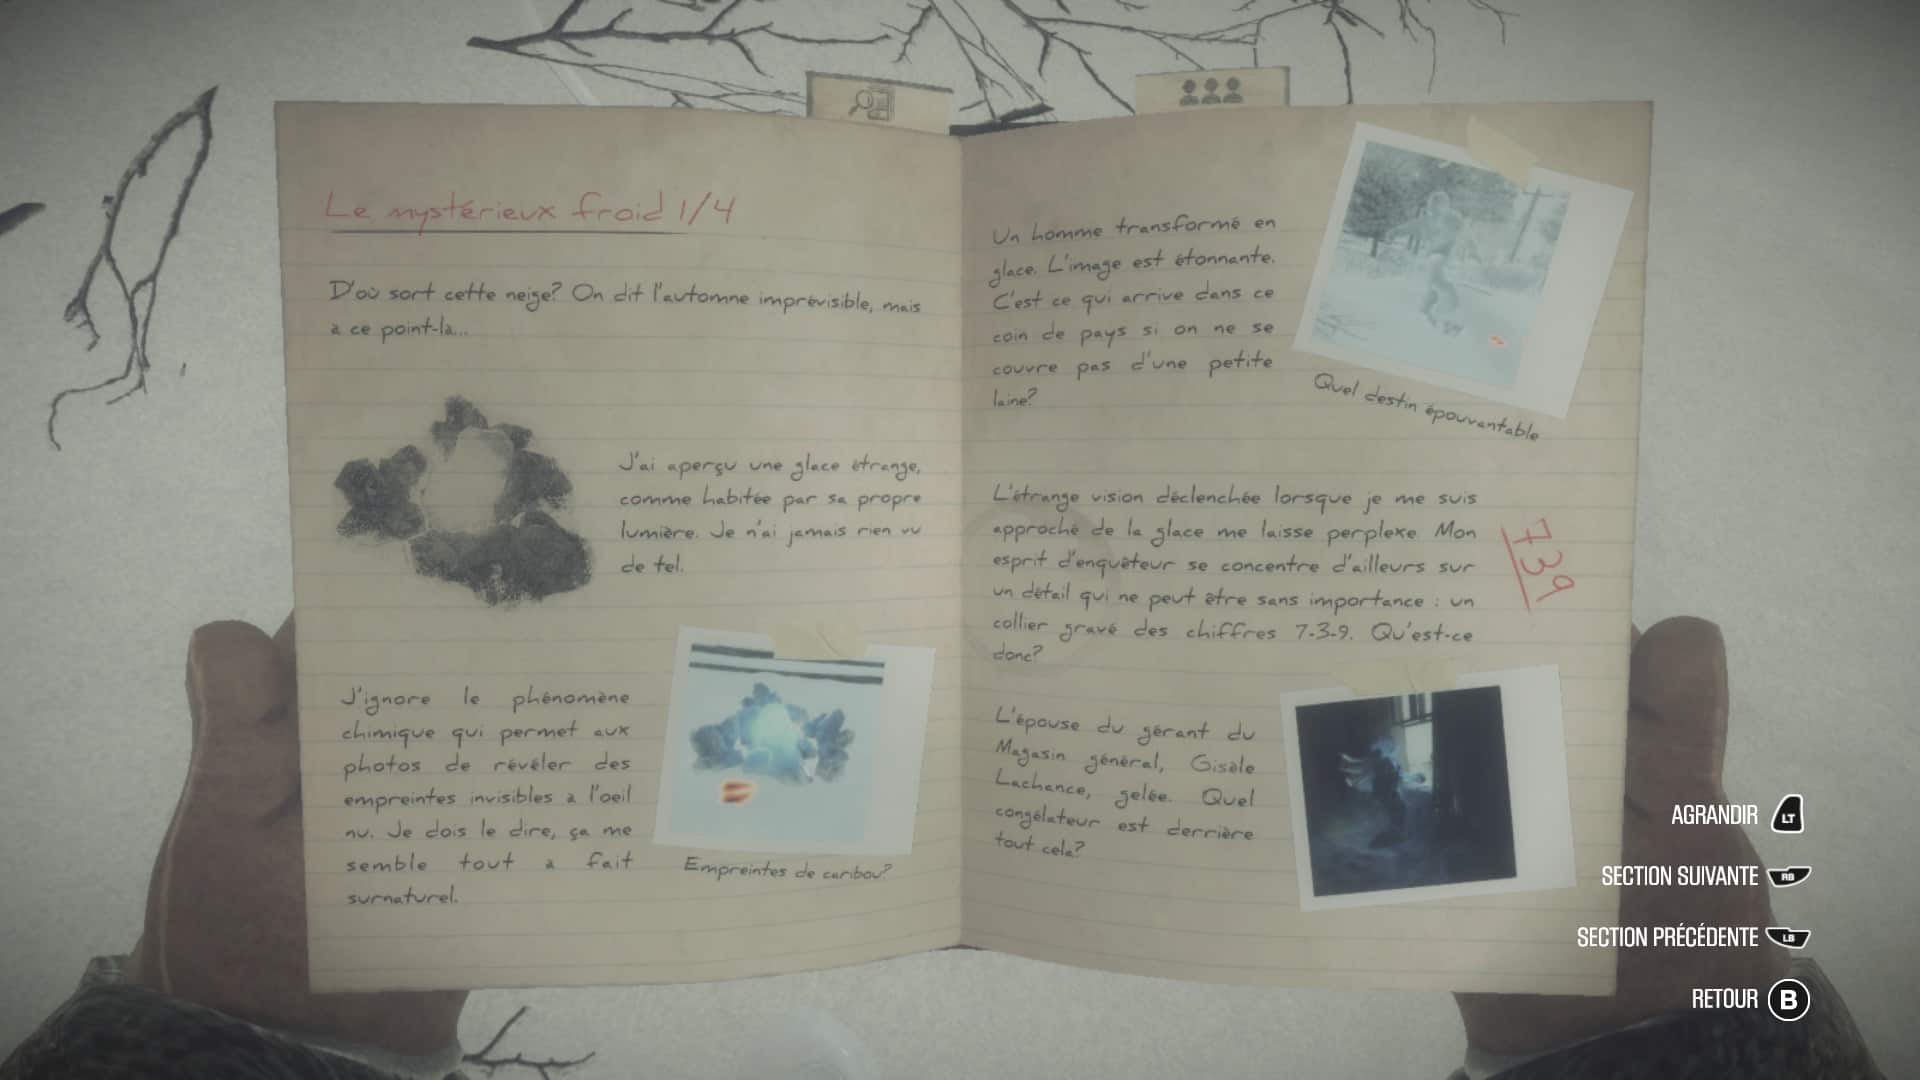 Le mystérieux froid 1/4
D'où sort cette neige? On dit l'automne imprévisible, mais
à ce point-là...
J'ai aperçu une glace étrange,
comme habitée par sa propre
lumière. Je n'ai jamais rien vu
de tel.
J'ignore le phénomène
chimique qui permet aux
photos de révéler des
empreintes invisibles à l'oeil
nu. Je dois le dire, ça me
semble tout à fait
surnaturel.
Empreintes de caribou?
Un homme transformé en
glace. L'image est étonnante.
C'est ce qui arrive dans ce
coin de pays si on ne se
couvre pas d'une petite
laine?
Quel destin épouvantable
L'étrange vision déclenchée lorsque je me suis
approché de la glace me laisse perplexe. Mon
esprit d'enquêteur se concentre d'ailleurs sur
un détail qui ne peut être sans importance : un
collier gravé des chiffres 7-3-9. Qu'est-ce
donc?
739
L'épouse du gérant du
Magasin général, Gisèle
Lachance, gelée. Quel
congélateur est derrière
tout cela?
AGRANDIR LT
SECTION SUIVANTE RB
SECTION PRÉCÉDENTE LB
RETOUR B